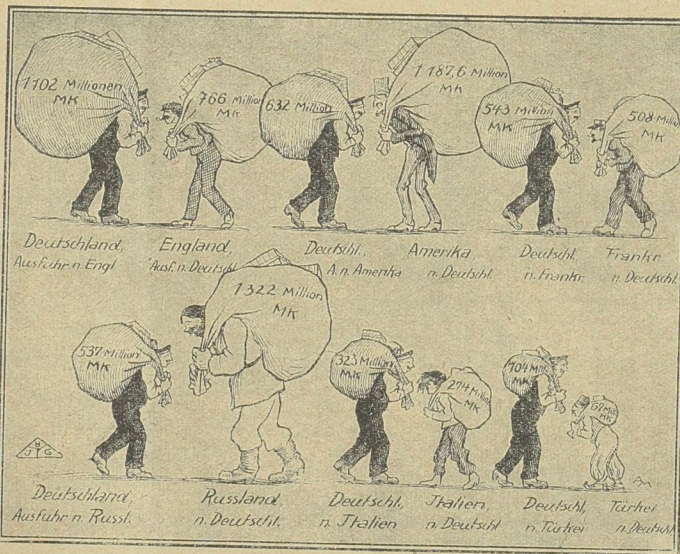 1102 Millionen
MK
766 Million
MK
632 Million
1187,6 Million
MK
543 Million
MK
508 Million
MK
Deutschland,
Ausfuhr n. Engl.
England,
Ausf. n. Deutschl.
Deutschl.,
A. n. Amerika
Amerika
n. Deutschl.
Deutschl.,
n. Frankr.
Frankr.
n. Deutschl.
1322 Million
MK
537 Million
MK
323 Million
MK
274 Million
MK
104 Mill.
MK
MK
H
J G
Deutschland,
Ausfuhr n. Russl.
Russland,
n. Deutschl.
Deutschl.,
n. Italien
Italien,
n. Deutschl
Deutschl,
n. Türkei
Türkei
n. Deutschl